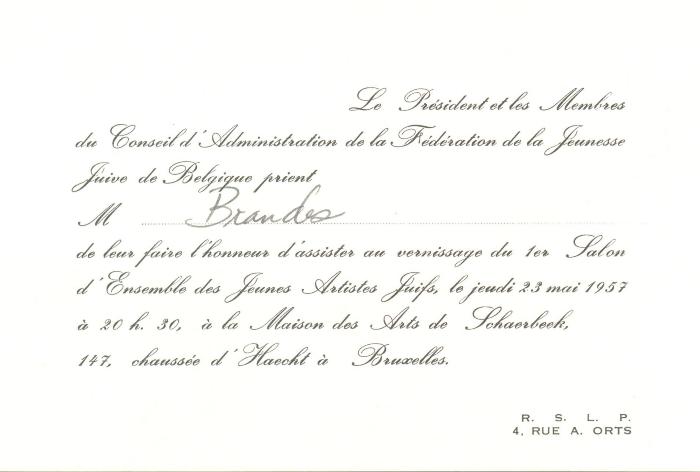 Le Président et les Membres
du Conseil d'Administration de la Fédération de la Jeunesse
Juive de Belgique prient
M Brandes
de leur faire l'honneur d'assister au vernissage du 1er Salon
d'Ensemble des Jeunes Artistes Juifs, le jeudi 23 mai 1957
à 20 h. 30, à la Maison des Arts de Schaerbeek,
147, chaussée d'Haecht à Bruxelles.
R. S. L. P.
4, RUE A. ORTS